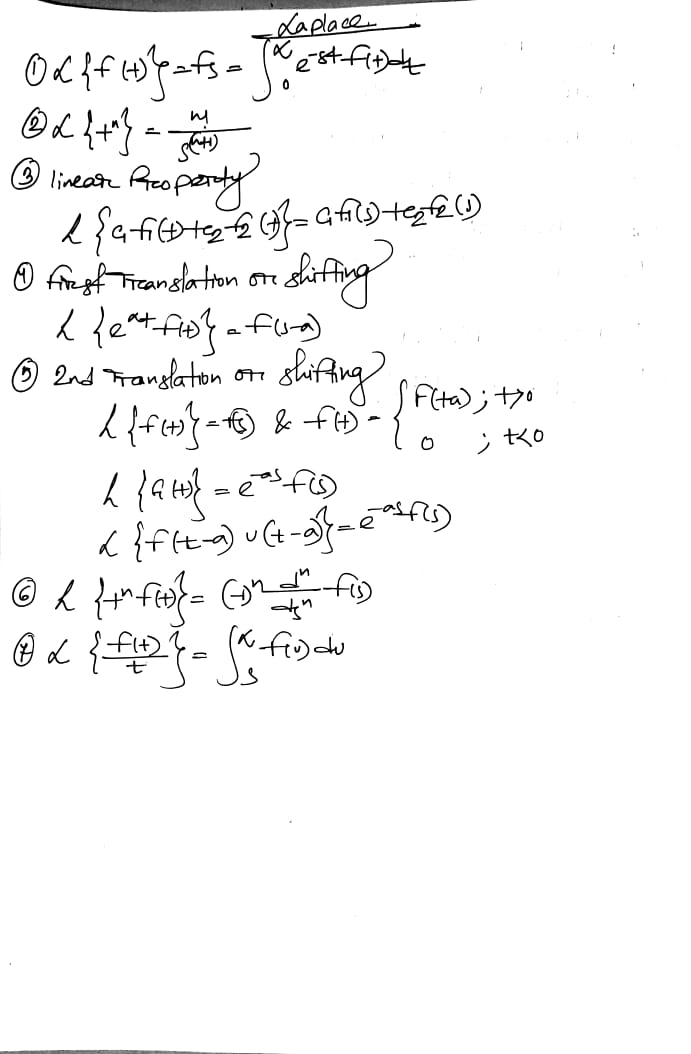 Laplace
① L{f(t)} = fs = ∫₀^∞ e^-st f(t) dt
② L{t^n} = n! / s^(n+1)
③ linear Property
L{c₁f₁(t)+c₂f₂(t)} = c₁f₁(s)+c₂f₂(s)
④ first Translation or shifting
L{e^at f(t)} = f(s-a)
⑤ 2nd Translation or shifting
L{f(t)} = f(s) & f(t) = { F(ta) ; t>0
0 ; t<0
L{G(t)} = e^-as f(s)
L{f(t-a) u(t-a)} = e^-as f(s)
⑥ L{t^n f(t)} = (-1)^n d^n/ds^n f(s)
⑦ L{f(t)/t} = ∫ₛ^∞ f(u) du